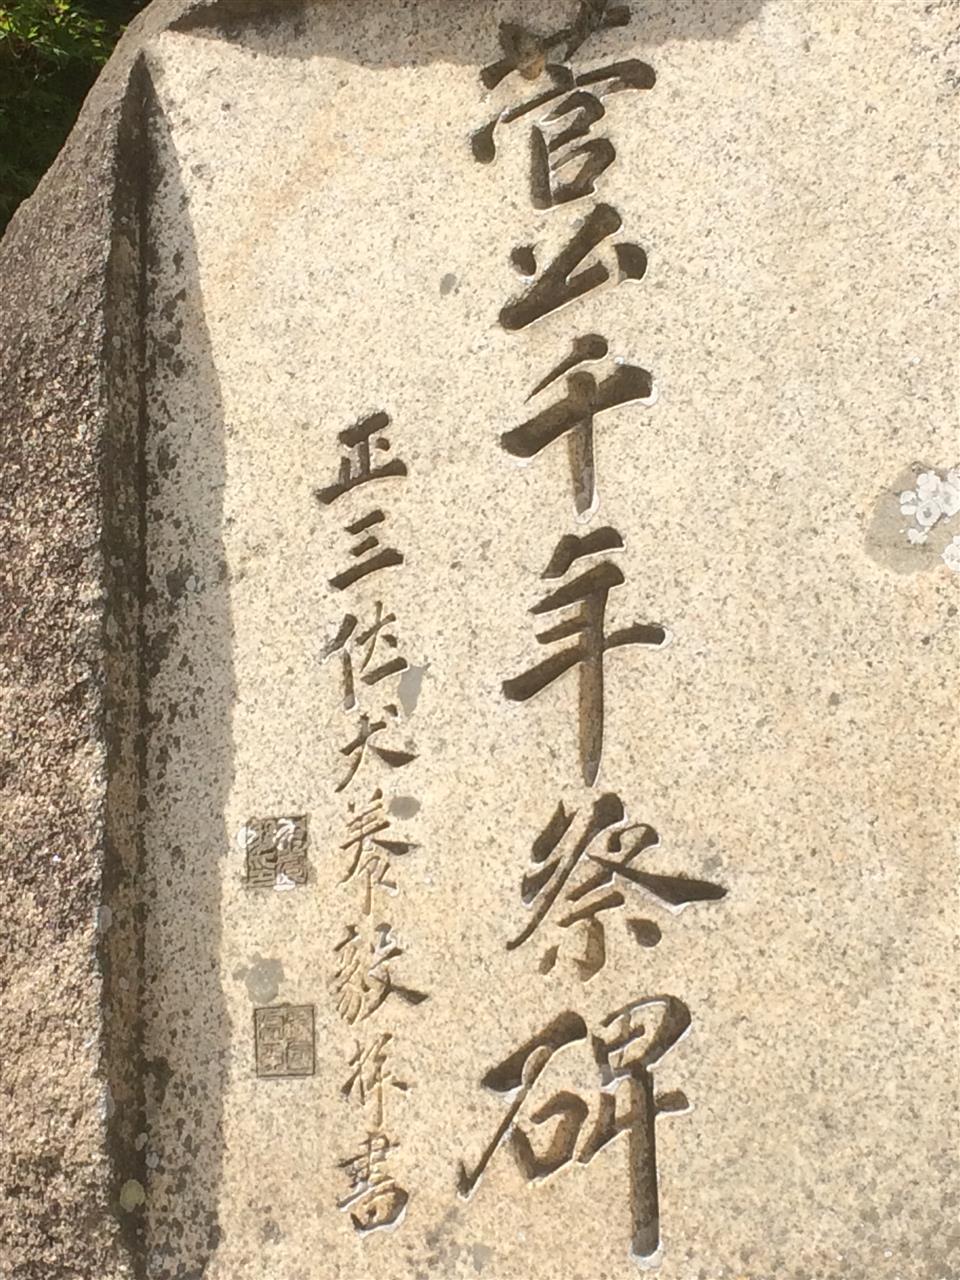 菅公千年祭碑
正三位犬養毅拝書